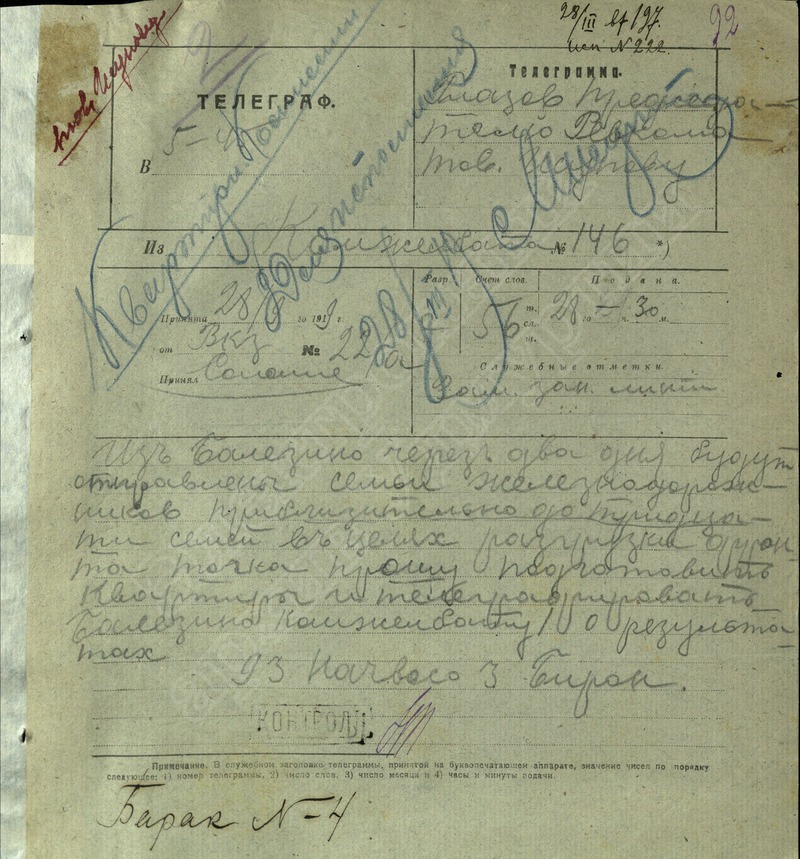 28/III вх 197.
исп № 222.
92
ТЕЛЕГРАФ.
В 5-й
Телеграмма.
Глазов Председа-
телю Ревкома
тов.
Квартирн Комиссии
Для исполнения
Из Комжелбата № 146 *)
Принята 28/III го 1919 г.
от Вкз № 22
Принял
Разр.
Счет слов.
Подача.
56
т.
сл.
ш.
28 го ч. 30 м.
Служебные отметки.
Изъ Балезино черезъ два дня будут
отправлены семьи железнодорож-
ников приблизительно до тридца-
ти семей въ целях разгрузки фрон-
та точка прошу подготовить
квартиры и телеграфировать
Балезино Комжелбату о результа-
тах
93 Начвосо 3 Бирон.
КОНТРОЛЬ
Примечание. В служебном заголовке телеграммы, принятой на буквопечатающем аппарате, значение чисел по порядку
следующее: 1) номер телеграммы, 2) число слов, 3) число месяца и 4) часы и минуты подачи.
Барак № 4